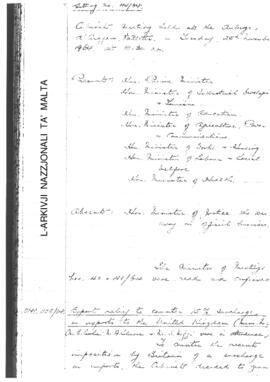 Meeting No. 142/64.
Cabinet Meeting held at the Auberge
d'Aragon, Valletta, on Tuesday, 24th November
1964, at 10.30 a.m.
Present: Hon. Prime Minister
Hon. Minister of Industrial Develop.
& Tourism
Hon. Minister of Education
Hon. Minister of Agriculture, Power
& Communications
Hon. Minister of Works & Housing
Hon. Minister of Labour & Social
Welfare
Hon. Minister of Health.
L-ARKIVJI NAZZJONALI TA' MALTA
Absent: Hon. Minister of Justice who was
away on official business.
The Minutes of Meetings
Nos. 140 & 141/64 were read and confirmed
Export relief to counter 15% surcharge
on exports to the United Kingdom
were in attendance.
To counter the recent
imposition by Britain of a surcharge
on imports, the Cabinet decided to grant